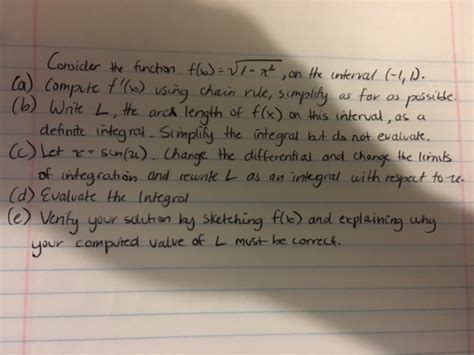 Consider the function f(x) = √1 - x², on the interval (-1, 1).
(a) Compute f'(x) using chain rule, simplify as far as possible.
(b) Write L, the arc length of f(x) on this interval, as a
definite integral. Simplify the integral but do not evaluate.
(c) Let x = sin(u). Change the differential and change the limits
of integration and rewrite L as an integral with respect to u.
(d) Evaluate the Integral
(e) Verify your solution by sketching f(x) and explaining why
your computed value of L must be correct.